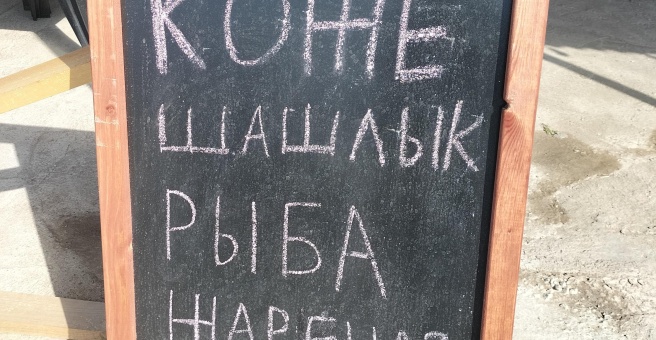 КОЖЕ
ШАШЛЫК
РЫБА
ЖАРЕНАЯ